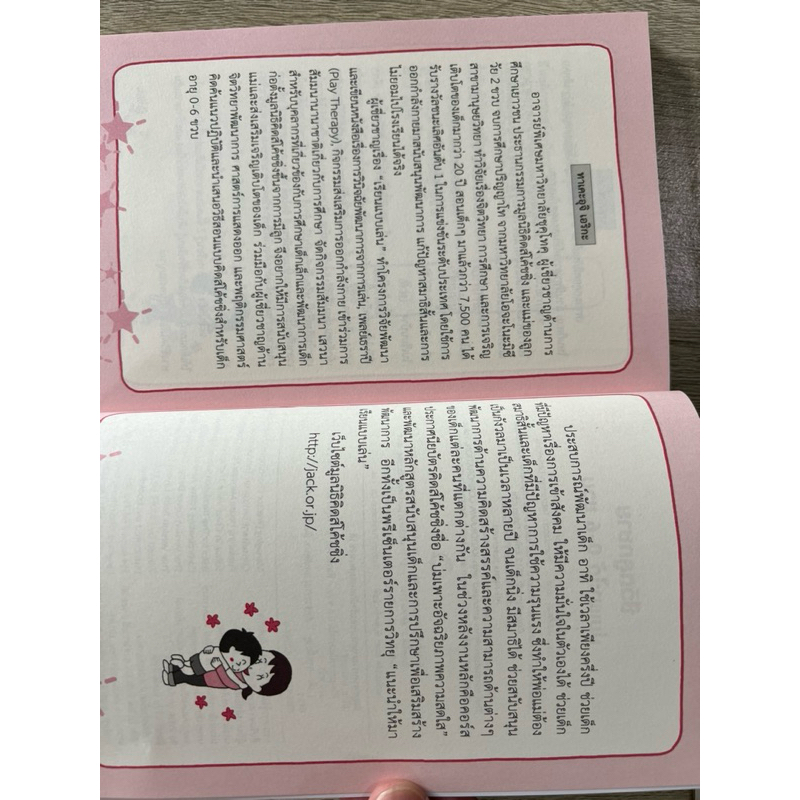 ทาเคะอุจิ เอริกะ
อาจารย์พิเศษมหาวิทยาลัยชุคุโทคุ ผู้เชี่ยวชาญด้านการ
ศึกษาเยาวชน ประธานกรรมการมูลนิธิคิดส์โค้ชชิ่ง และแม่ของลูก
วัย 2 ขวบ จบการศึกษาปริญญาโท จากมหาวิทยาลัยโอจะโนะมิซึ
สาขามานุษยวิทยา ทำวิจัยเรื่องจิตวิทยา การศึกษา และการเจริญ
เติบโตของเด็กมากว่า 20 ปี สอนเด็กๆ มาแล้วกว่า 7,500 คน ได้
รับรางวัลชนะเลิศอันดับ 1 ในการแข่งขันระดับประเทศ โดยใช้การ
ออกกำลังกายมาสนับสนุนพัฒนาการ แก้ปัญหาสมาธิสั้นและการ
ไม่ยอมไปโรงเรียนได้จริง
ผู้เชี่ยวชาญเรื่อง "เรียนแบบเล่น" ทำโครงการวิจัยพัฒนา
และเขียนหนังสือเรื่องการวินิจฉัยพัฒนาการจากการเล่น, เพลย์เธราปี
(Play Therapy), กิจกรรมส่งเสริมการออกกำลังกาย เข้าร่วมการ
สัมมนานานาชาติเกี่ยวกับการศึกษา จัดกิจกรรมสัมมนา เสวนา
สำหรับบุคลากรที่เกี่ยวข้องกับการศึกษาเด็กเล็กและพัฒนาการเด็ก
ก่อตั้งมูลนิธิคิดส์โค้ชชิ่งขึ้นจากการมีลูก จึงอยากให้มีการสนับสนุน
แม่และส่งเสริมเจริญเติบโตของเด็ก ร่วมมือกับผู้เชี่ยวชาญด้าน
จิตวิทยาพัฒนาการ ศาสตร์การแสดงออก และพฤติกรรมศาสตร์
คิดค้นแนวปฏิบัติและนำเสนอวิธีสอนแบบคิดส์โค้ชชิ่งสำหรับเด็ก
อายุ 0-6 ขวบ
ประสบการณ์พัฒนาเด็ก อาทิ ใช้เวลาเพียงครึ่งปี ช่วยเด็ก
ที่มีปัญหาเรื่องการเข้าสังคม ให้มีความมั่นใจในตัวเองได้ ช่วยเด็ก
สมาธิสั้นและเด็กที่มีปัญหาการใช้ความรุนแรง ซึ่งทำให้พ่อแม่ต้อง
เป็นกังวลมาเป็นเวลาหลายปี จนเด็กนิ่ง มีสมาธิได้ ช่วยสนับสนุน
พัฒนาการด้านความคิดสร้างสรรค์และความสามารถด้านต่างๆ
ของเด็กแต่ละคนที่แตกต่างกัน ในช่วงหลังงานหลักคือคอร์ส
ประกาศนียบัตรคิดส์โค้ชชิ่งชื่อ "บ่มเพาะอัจฉริยภาพความสดใส"
และพัฒนาหลักสูตรสนับสนุนเด็กและการปรึกษาเพื่อเสริมสร้าง
พัฒนาการ อีกทั้งเป็นพรีเซ็นเตอร์รายการวิทยุ "แนะนำให้มา
เรียนแบบเล่น"
เว็บไซต์มูลนิธิคิดส์โค้ชชิ่ง
http://jack.or.jp/